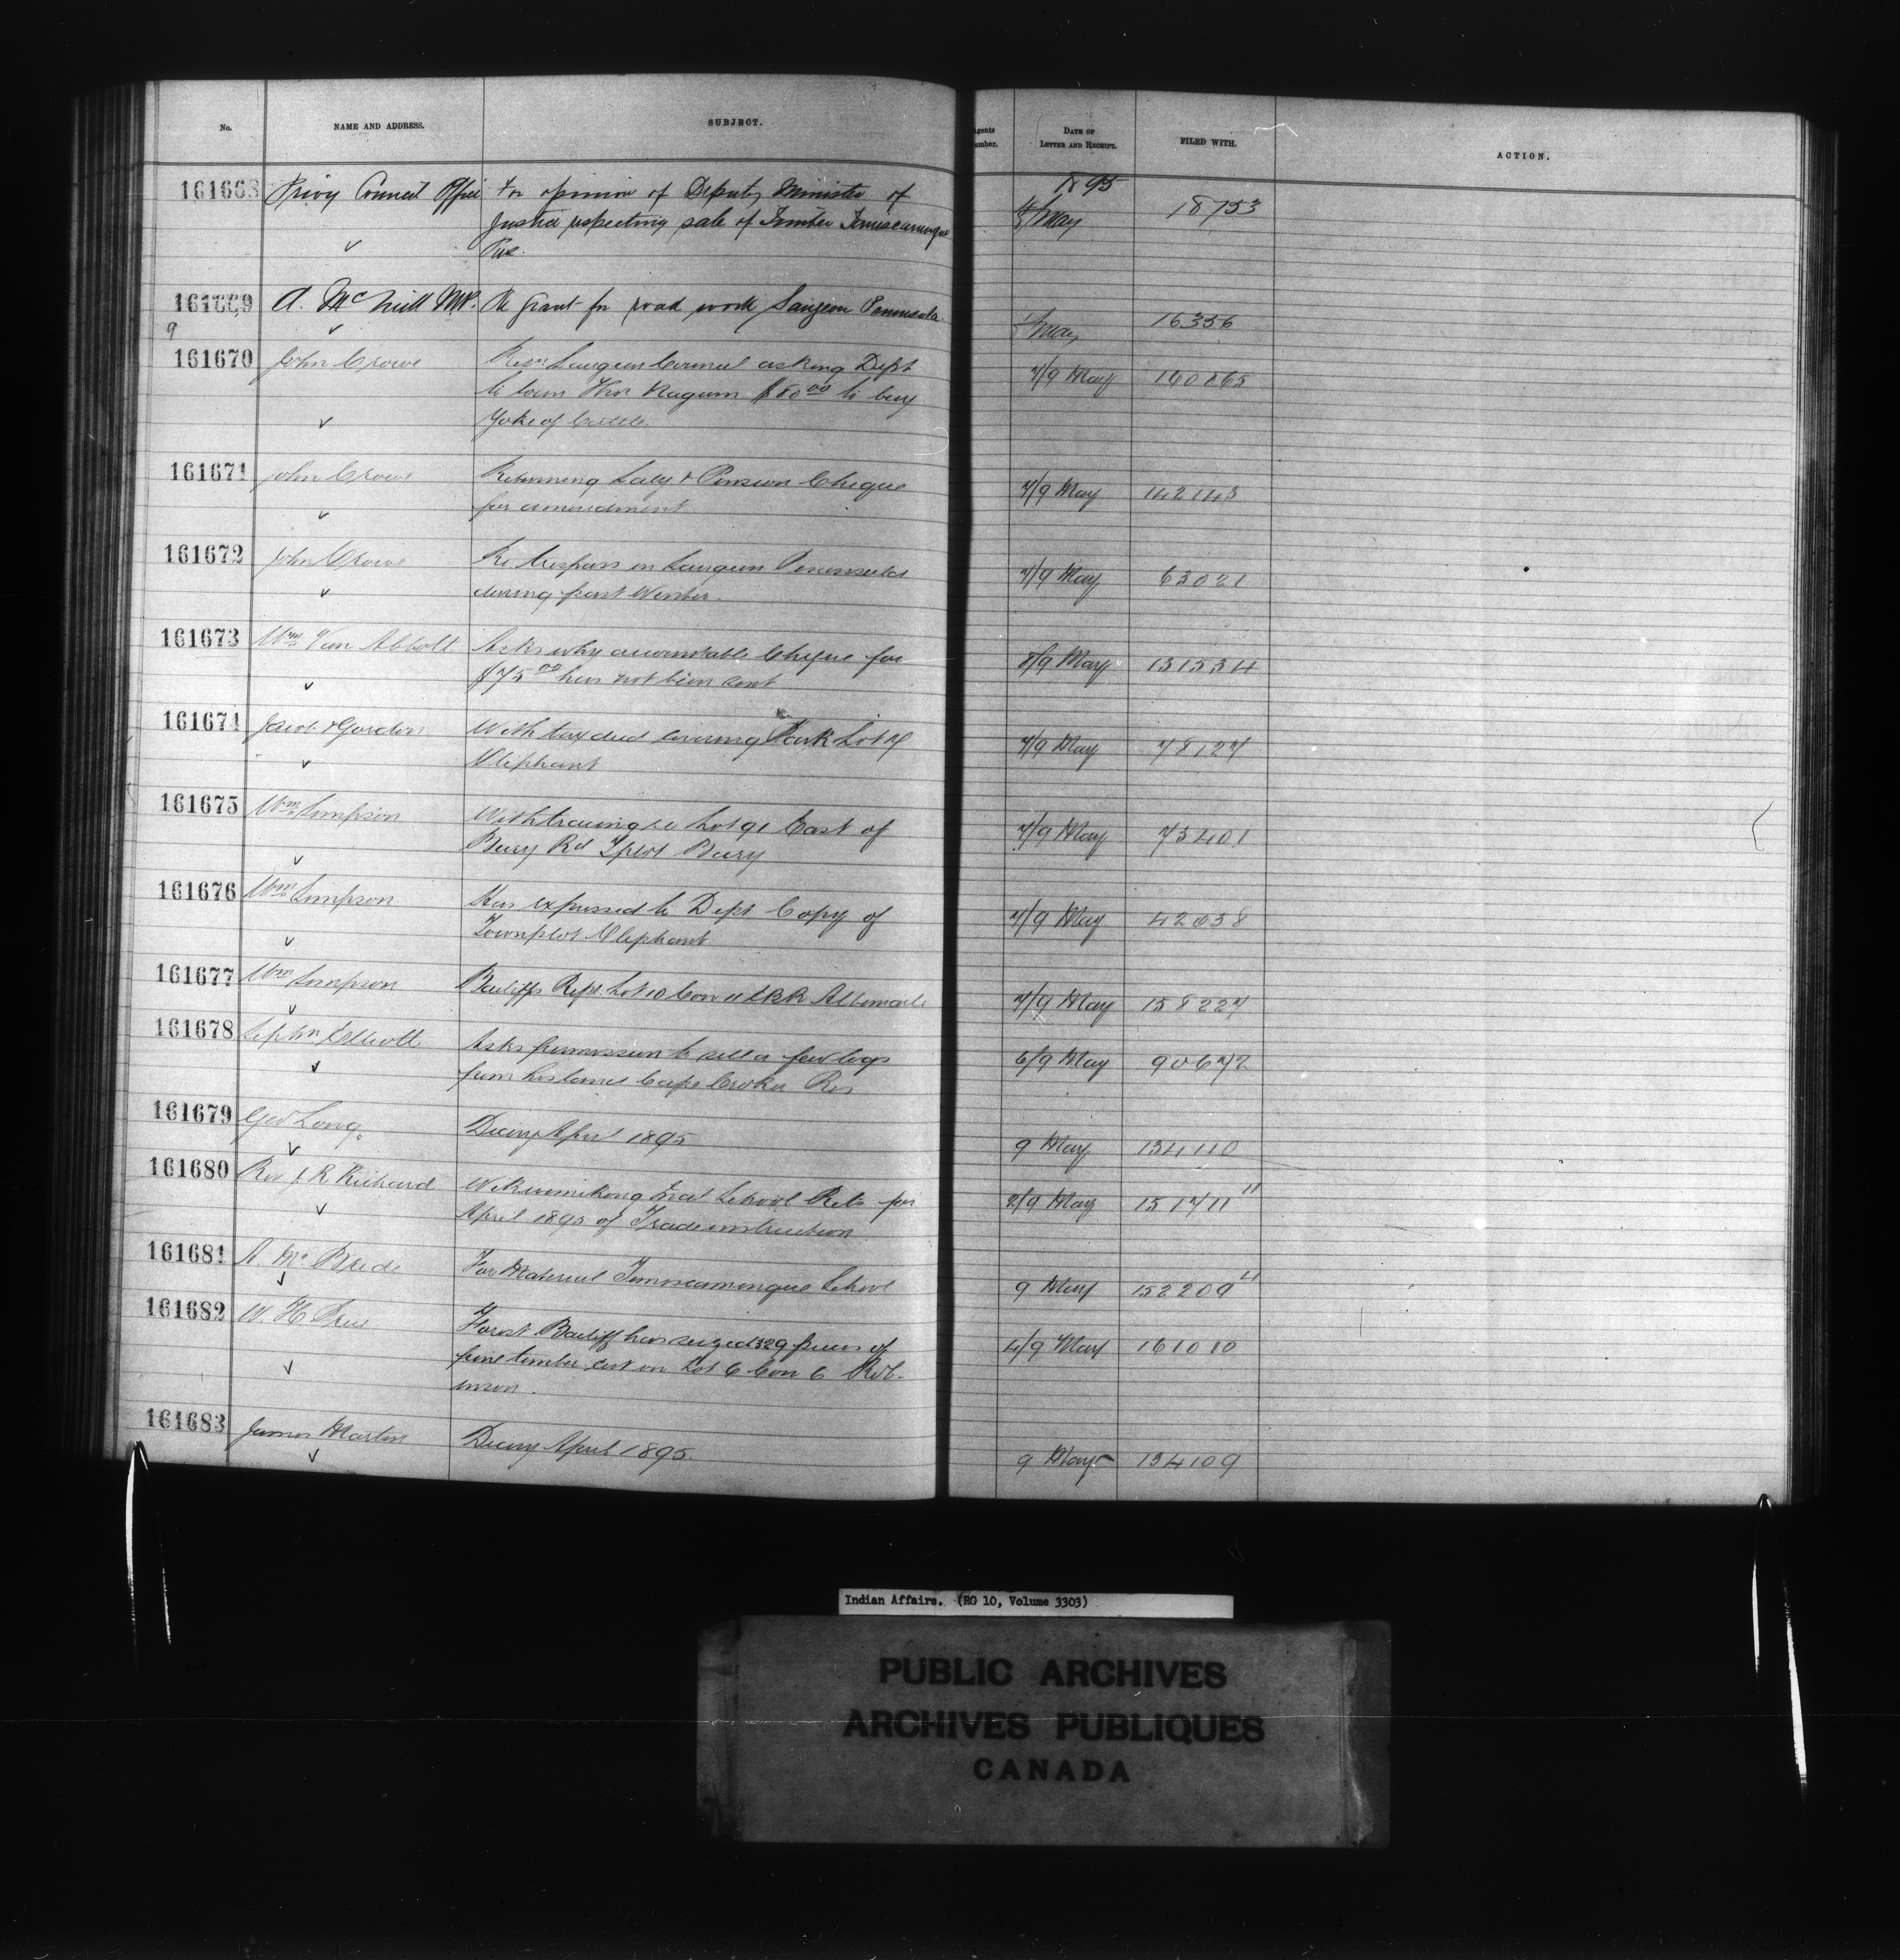 No. NAME AND ADDRESS. SUBJECT. Agents Number. DATE OF LETTER AND RECEIPT. FILED WITH. ACTION.
1895
161668 Privy Council Office For opinion of Deputy Minister of May 18753
Justice respecting sale of Timber Temiscamingue
Res.
161669 A. McNeill M.P. Re Grant for road work Saugeen Peninsula. May 16356
9
161670 John Crowe Resn Saugeen Council asking Dept 7/9 May 160865
to loan Thos Nagum $80.00 to buy
Yoke of Cattle.
161671 John Crowe Returning Saly & Pension Cheque 7/9 May 142143
for amendment
161672 John Crowe Re trespass on Saugeen Peninsula 7/9 May 63021
during past Winter.
161673 Wm Van Abbott Asks why accountable Cheque for 8/9 May 131534
$75.00 has not been sent
161674 Jacob & Gordon With tax deed covering Park Lot 7/9 May 78127
Oliphant
161675 Wm Simpson With tracing re Lot 91 East of 7/9 May 73401
Bury Rd Tplot Bury
161676 Wm Simpson Has expressed to Dept Copy of 7/9 May 42038
Townplot Oliphant
161677 Wm Simpson Bailiffs Rept. Lot 10 Con 11 E.B.R. Albemarle 7/9 May 158227
161678 Elliott Asks permission to sell a few logs 6/9 May 90672
from his land Cape Croker Res
161679 Geo Long. Diary April 1895 9 May 134110
161680 Rev J. R. Richard Wikwemikong Indl School Rets for 2/9 May 151711 11
April 1895 of Trade instruction
161681 A. McBride For Material Temiscamingue School 9 May 152209 11
161682 W. H. Price Forest Bailiff has seized 329 pieces of 4/9 May 161010
pine timber cut on Lot 6 Con 6 Rob-
inson.
161683 James Martin Diary April 1895. 9 May 134109
Indian Affairs. (RG 10, Volume 3303)
PUBLIC ARCHIVES
ARCHIVES PUBLIQUES
CANADA